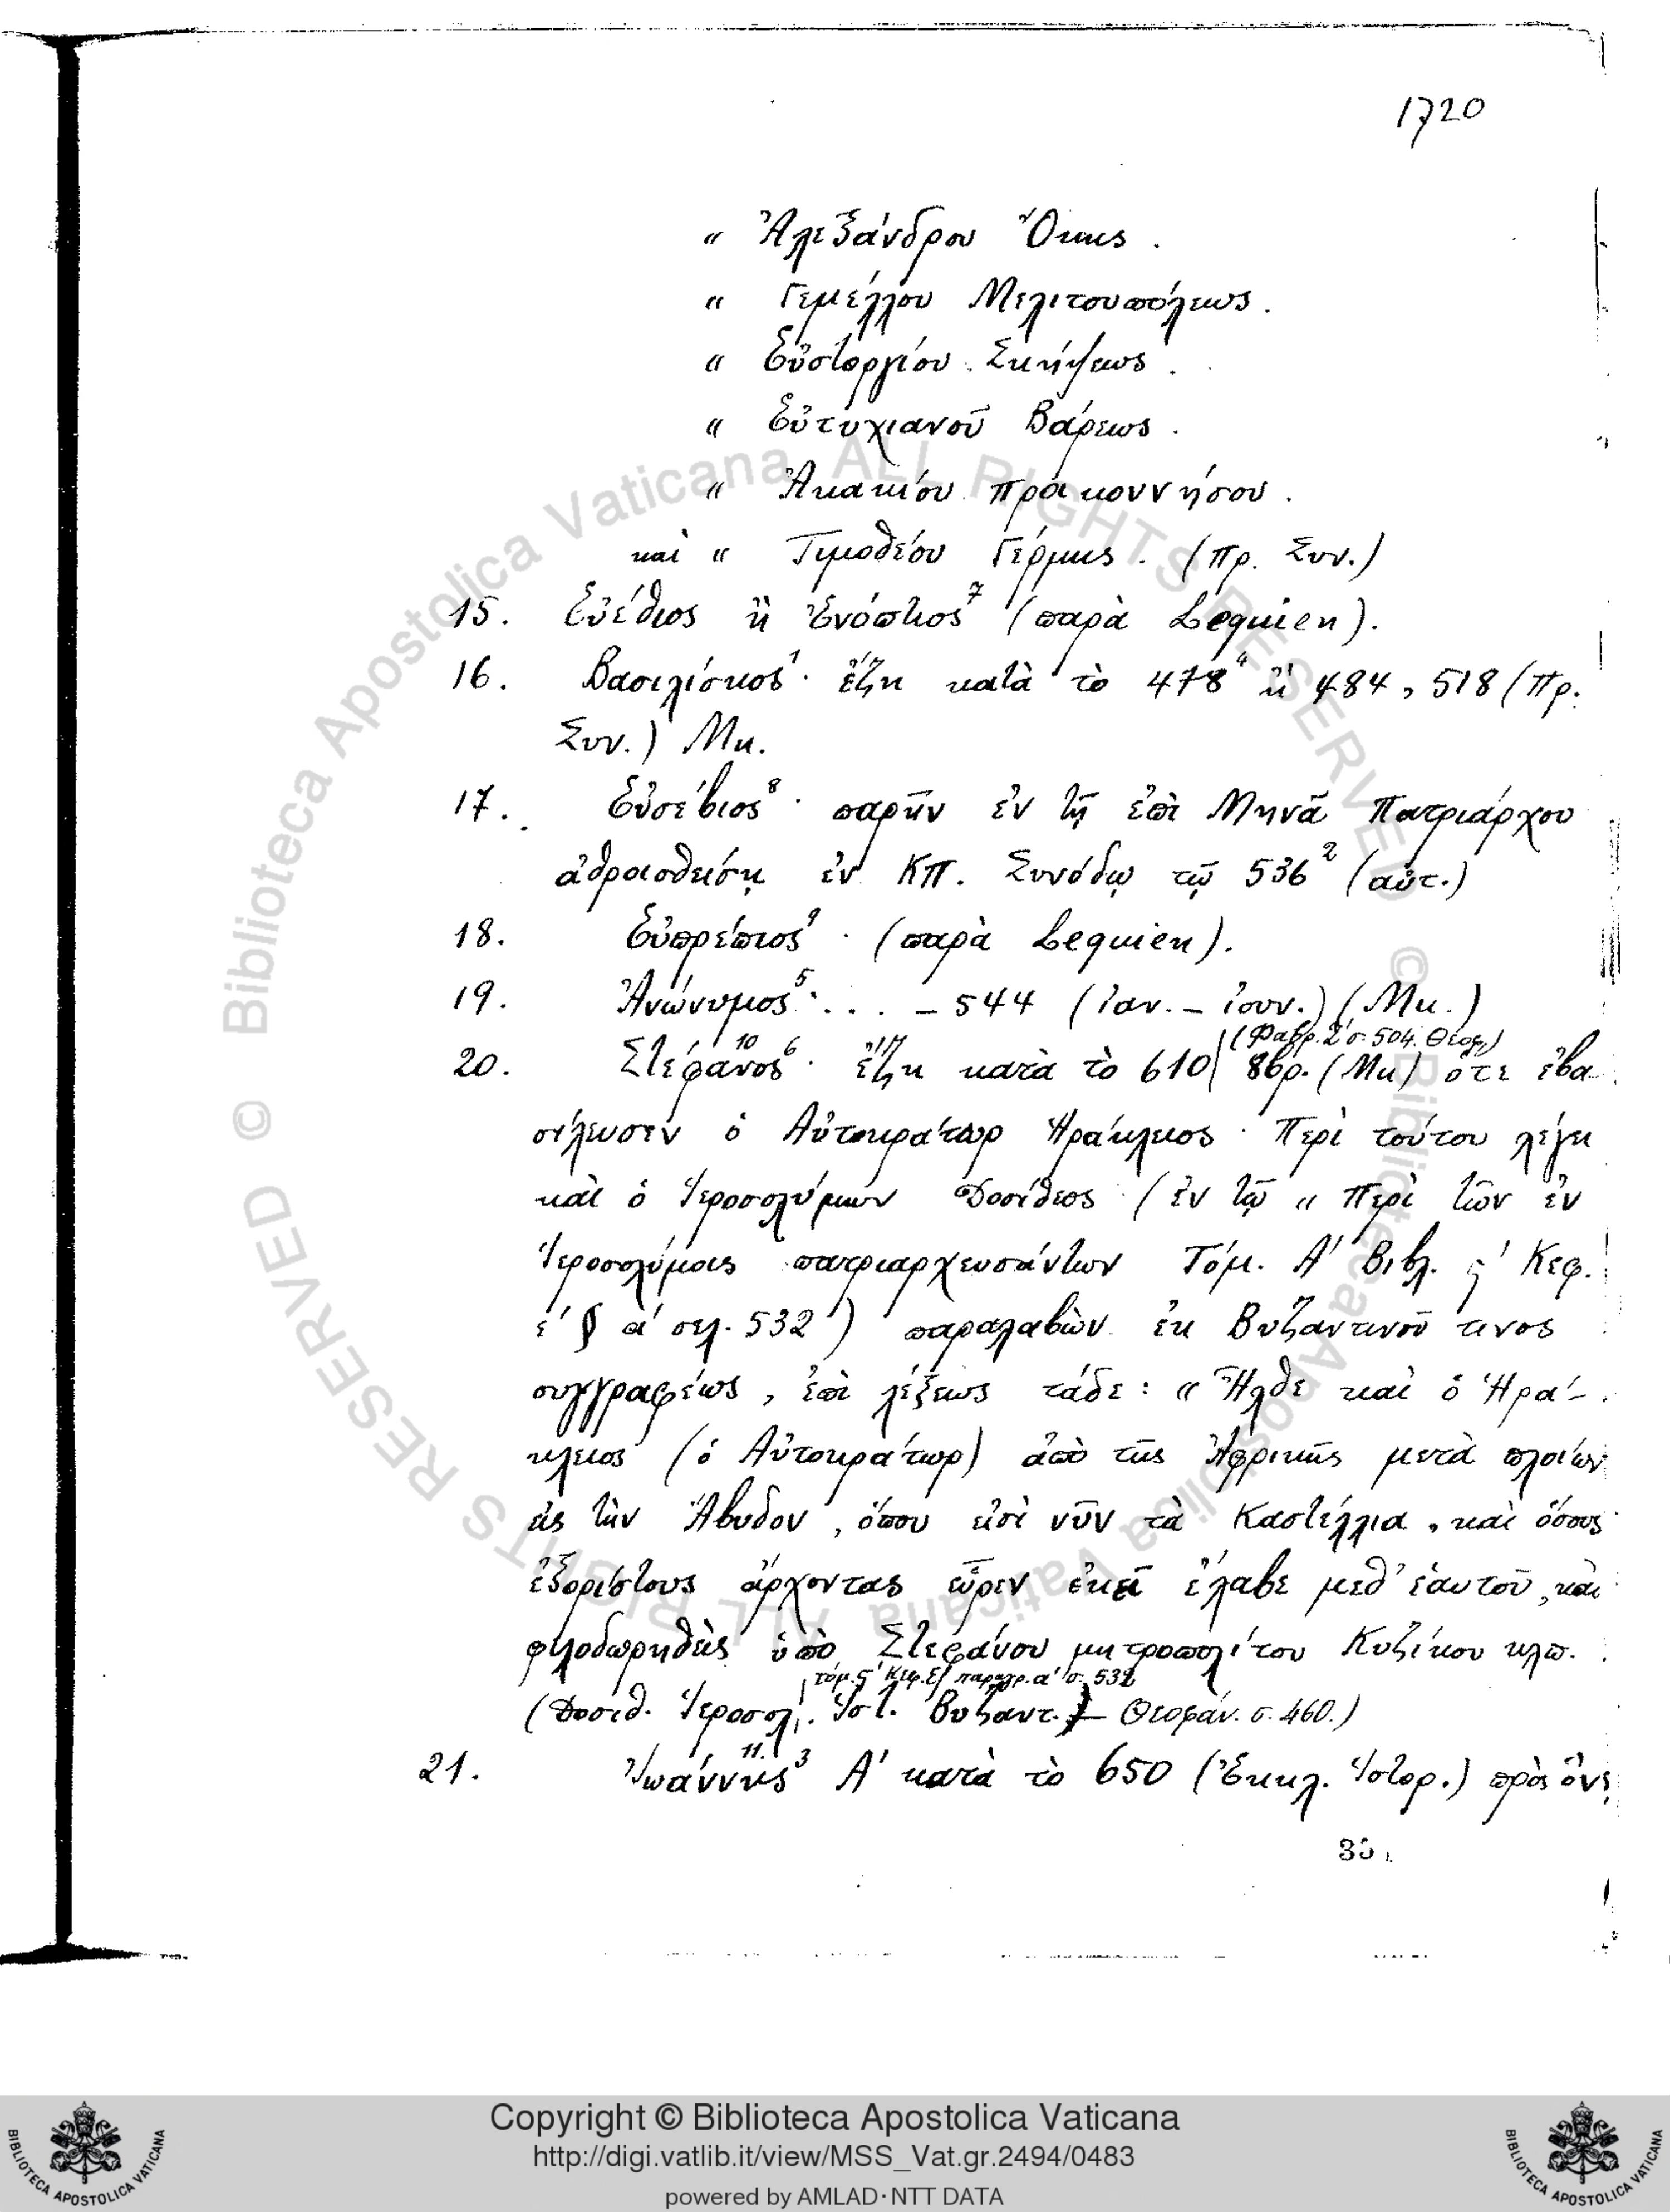 1720
" Ἀλεξάνδρου Ὄκης .
" Γεμέλλου Μελιτουπόλεως .
" Εὐστοργίου Σκήψεως .
" Εὐτυχιανοῦ Βάρεως .
" Ἀκακίου Προικοννήσου .
καὶ " Τιμοθέου Γέρμης . (Πρ. Συν.)
15. Εὐέθιος ἢ Ἐνόπτιος⁷ (παρὰ Lequien).
16. Βασιλίσκος¹· ἔζη κατὰ τὸ 478⁴ ἢ 484, 518 (Πρ.
Συν.) Μκ.
17. Εὐσέβιος⁸· παρῆν ἐν τῇ ἐπὶ Μηνᾶ Πατριάρχου
ἀθροισθείσῃ ἐν ΚΠ. Συνόδῳ τῷ 536² (αὐτ.)
18. Εὐπρέπιος⁹ · (παρὰ Lequien).
19. Ἀνώνυμος⁵· . . . – 544 (ἰαν. – ἰουν.) (Μκ.)
(Φαβρ. Ζ' σ. 504. Θεοφ)
20. Στέφανος¹⁰ ⁶· ἔζη κατὰ τὸ 610 8βρ. (Μκ) ὅτε ἐβα
σίλευσεν ὁ Αὐτοκράτωρ Ἡράκλειος· Περὶ τούτου λέγει
καὶ ὁ Ἱεροσολύμων Δοσίθεος (ἐν τῷ " Περὶ τῶν ἐν
Ἱεροσολύμοις πατριαρχευσάντων Τόμ. Α' Βιβλ. ϛ' Κεφ.
ε' § α' σελ. 532) παραλαβὼν ἐκ Βυζαντινοῦ τινος
συγγραφέως, ἐπὶ λέξεως τάδε: « Ἦλθε καὶ ὁ Ἡρά-
κλειος (ὁ Αὐτοκράτωρ) ἀπὸ τῆς Ἀφρικῆς μετὰ πλοίων
εἰς τὴν Ἄβυδον, ὅπου εἰσὶ νῦν τὰ Καστέλλια, καὶ ὅσους
ἐξορίστους ἄρχοντας εὗρεν ἐκεῖ ἔλαβε μεθ' ἑαυτοῦ, καὶ
φιλοδωρηθεὶς ὑπὸ Στεφάνου μητροπολίτου Κυζίκου κλπ.
τόμ. ϛ' Κεφ. Ε' παραγρ. α' σ. 532
(Δοσίθ. Ἱεροσολ. Ἱστ. Βυζαντ.) – Θεοφάν. σ. 460.)
21. Ἰωάννης¹¹· ³ Α' κατὰ τὸ 650 (Ἐκκλ. Ἱστορ.) πρὸς ὃν
Copyright © Biblioteca Apostolica Vaticana
http://digi.vatlib.it/view/MSS_Vat.gr.2494/0483
powered by AMLAD·NTT DATA
BIBLIOTECA APOSTOLICA VATICANA
BIBLIOTECA APOSTOLICA VATICANA
© Biblioteca Apostolica Vaticana ALL RIGHTS RESERVED
© Biblioteca Apostolica Vaticana ALL RIGHTS RESERVED